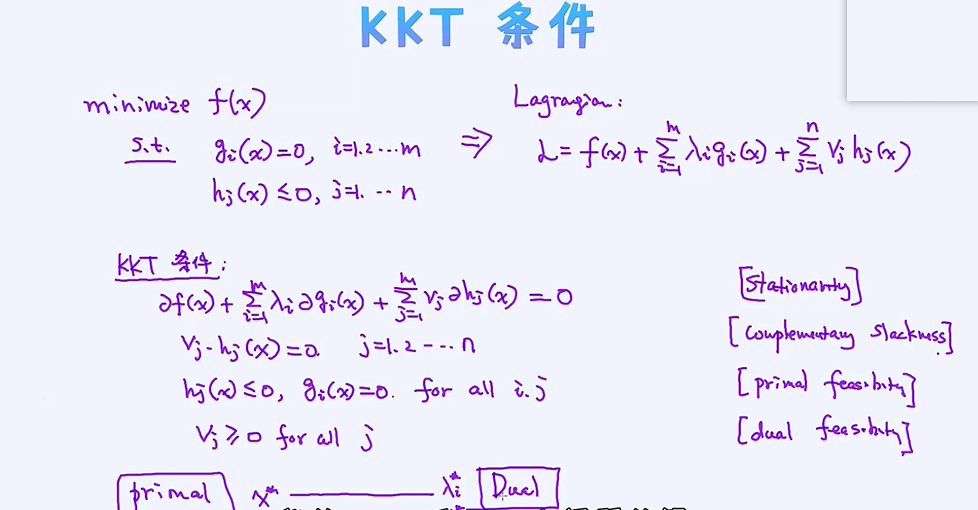 KKT 条件
minimize f(x)
Lagragian:
s.t. gi(x)=0, i=1.2...m
⇒ L = f(x) + ∑_{i=1}^{m} λi gi(x) + ∑_{j=1}^{n} Vj hj(x)
hj(x) ≤0, j=1. ... n
KKT 条件:
∂f(x) + ∑_{i=1}^{m} λi ∂gi(x) + ∑_{j=1}^{m} Vj ∂hj(x) = 0 [Stationarity]
Vj · hj(x)=0. j=1.2 ---n [complementary slackness]
hj(x) ≤0, gi(x)=0. for all i.j [primal feasibility]
Vj ≥ 0 for all j [dual feasibility]
primal x* —— λi* Dual